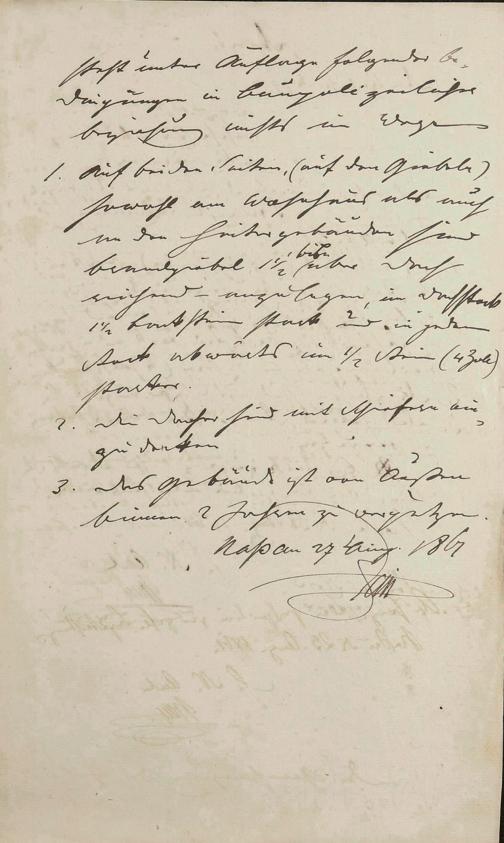 steht unter Auflage folgender Be-
dingungen in baupolizeilicher
Beziehung nichts im Wege
1. Auf beiden Seiten, (auf den Giebeln)
sowohl am Wohnhaus als auch
an den Seitengebäuden sind
Brandgiebel 1 1/2' über Dach
reichend anzulegen, im Dachstock
1 1/2 Backstein stark und in jedem
Stock abwärts um 1/2 Stein (4 Zoll)
starker.
2. Die Dächer sind mit Schiefern ein-
zudecken
3. Das Gebäude ist von Außen
binnen 2 Jahren zu verputzen.
Nassau 27 Aug. 1861